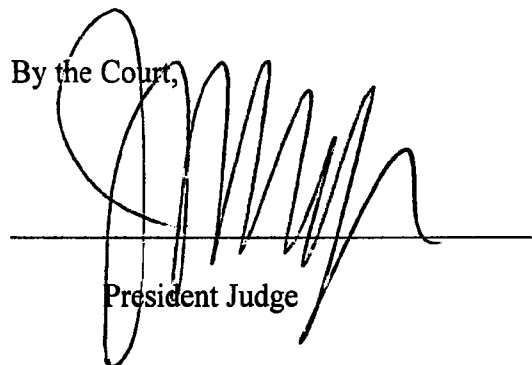 By the Court,
President Judge